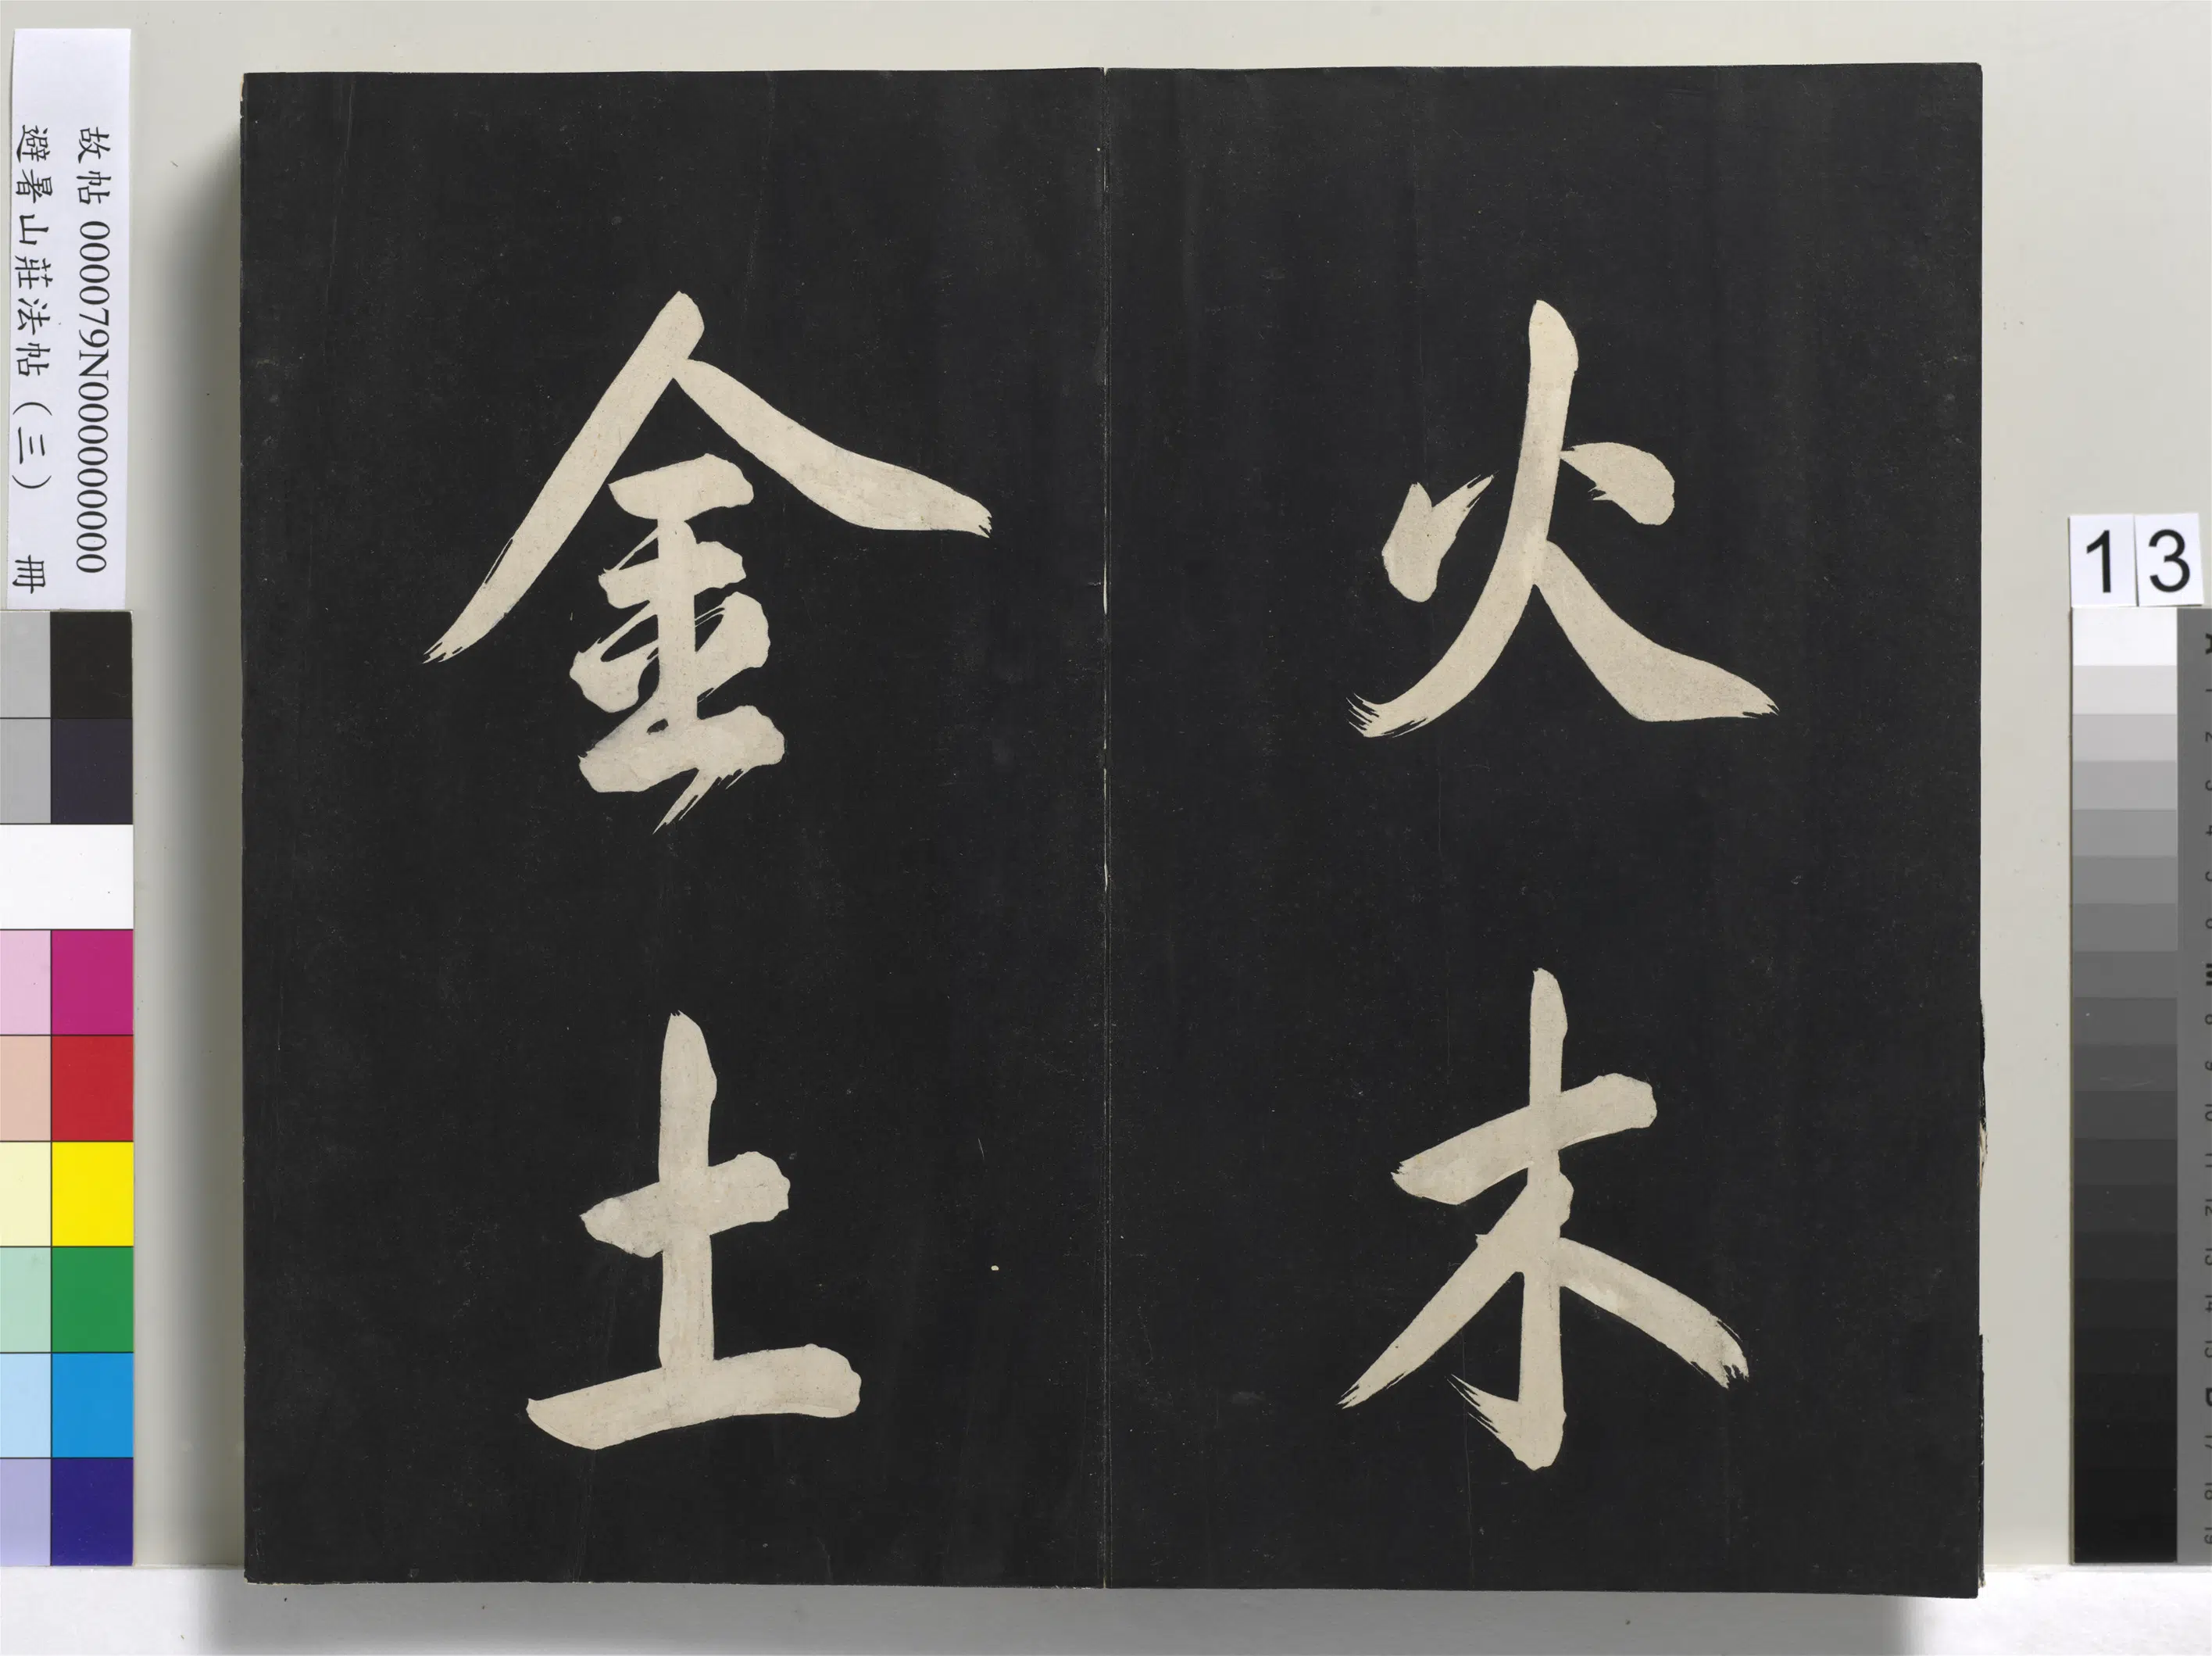 火木
金土
故帖 000079N000000000
避暑山莊法帖（三） 冊
13